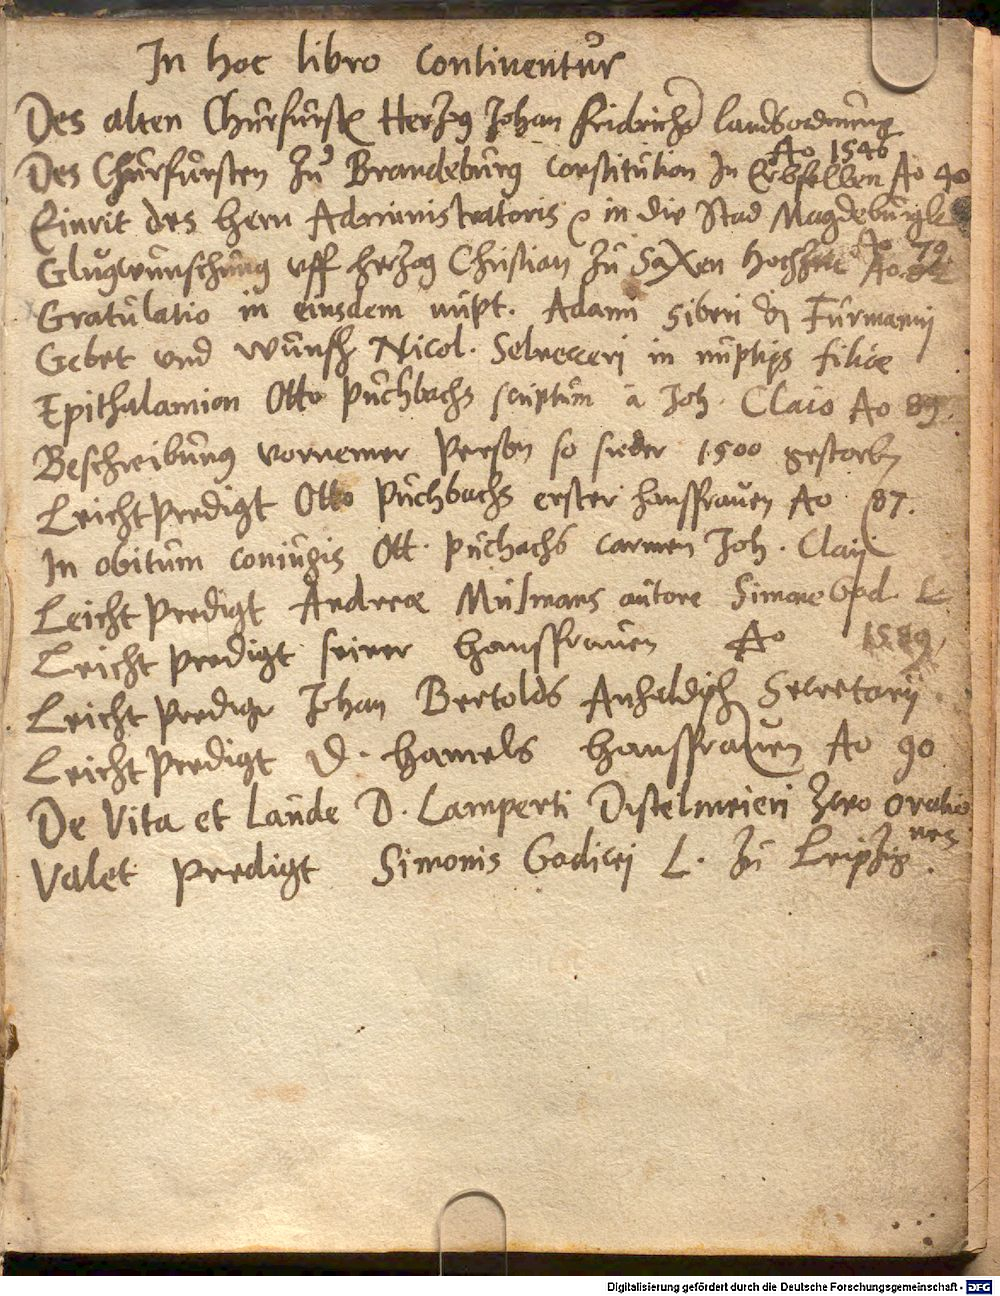 In hoc libro continentur
Des alten Churfursten Herzog Johan Fridrichs landsordnung
Ao 1546
Des Churfursten zu Brandeburg constitution In Erbfellen Ao 40
Einrit des hern Administratoris in die Stad Magdeburgk
Ao 79
Glugwunschung uff herzog Christian zu Saxen Hochzeit Ao
Gratulatio in eiusdem nupt. Adami Siberi
Gebet und wunsch Nicol. Selnecceri in nuptijs filiae
Epithalamion Otto Puchbachs scriptum a Joh. Claio Ao 89.
Beschreibung vornemer Person so sieder 1500 gestorbn
Leicht Predigt Otto Puchbachs erster hausfrauen Ao 87.
In obitum coniugis Ott. Puchachs carmen Joh. Claij
Leicht Predigt Andreae Musmans autore Simone God. L.
Leicht predigt seiner hausfrauen Ao 1589.
Leicht Predigt Johan Bertolds Anhaldisch Secretarij
Leicht Predigt D. hamels hausfrauen Ao 90
De Vita et Laude D. Lamperti Distelmeieri zwo oratio
nes
Valet Predigt Simonis Godicej L. zu Leipzig.
Digitalisierung gefördert durch die Deutsche Forschungsgemeinschaft - DFG